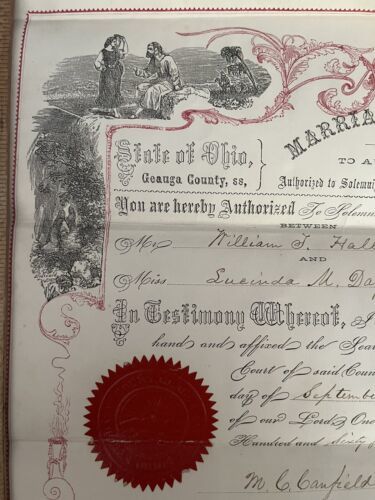 MARRIA
State of Ohio,
Geauga County, ss,
TO A
Authorized to Solemni
You are hereby Authorized To Solemn
BETWEEN
Mr William S. Hall
AND
Miss Lucinda M. Da
In Testimony Whereof, I
hand and affixed the Sea
Court of said, Coun
day of Septembe
of our Lord One
Hundred and Sixty
M. C. Canfield